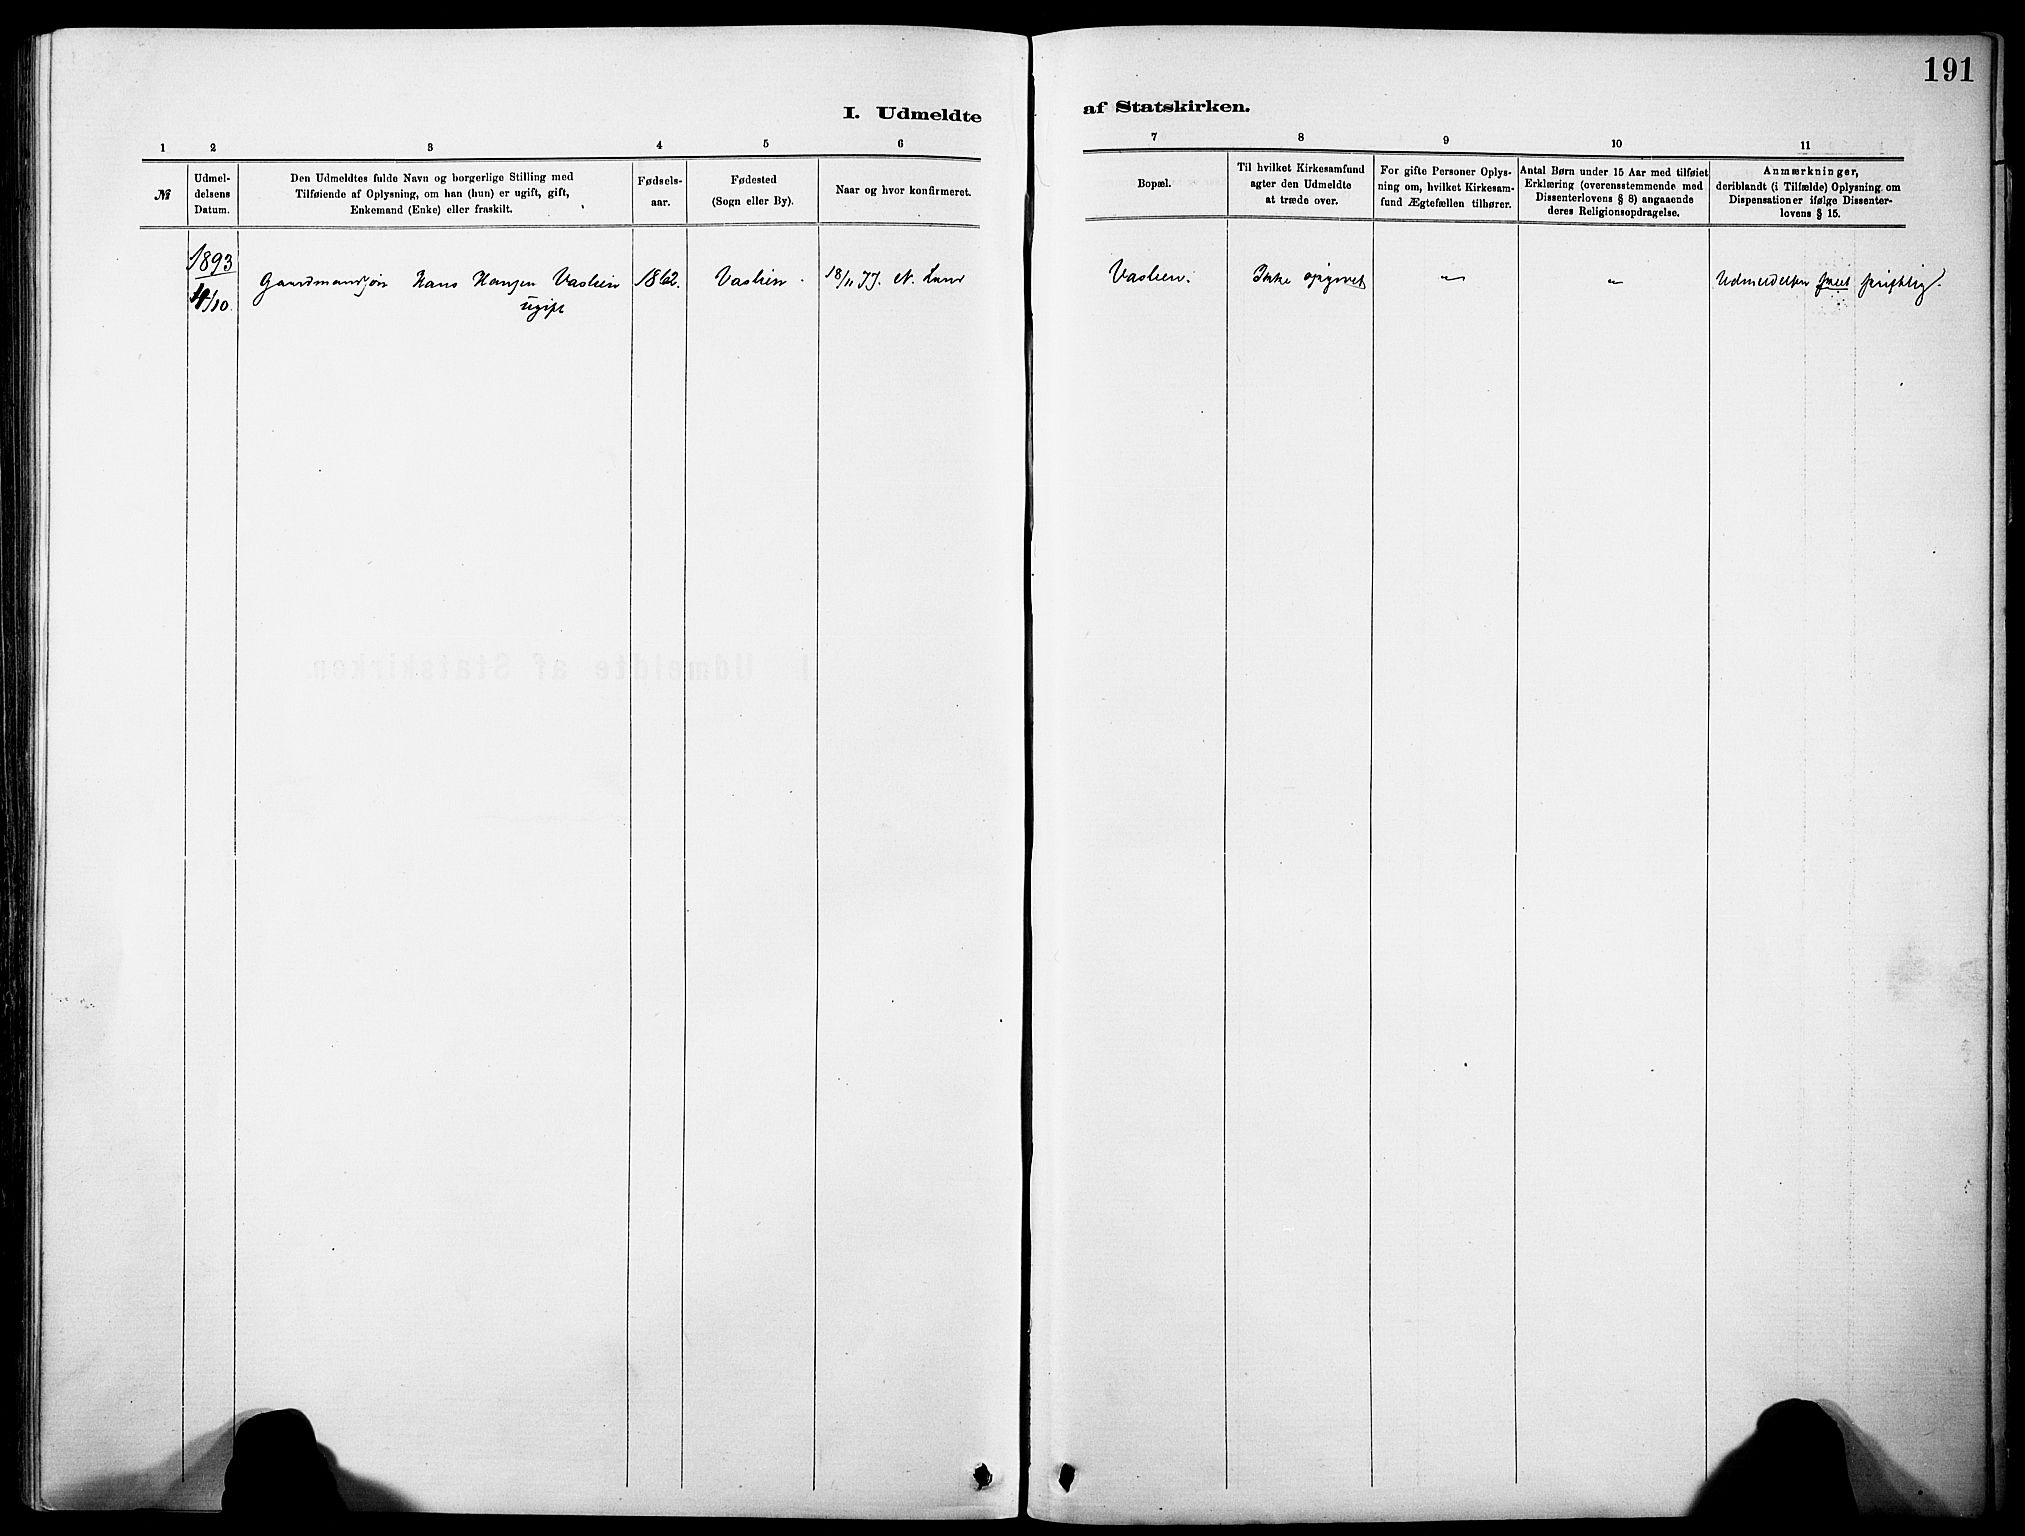 191
I. Udmeldte af Statskirken.
1 2 3 4 5 6 7 8 9 10 11
№
Udmel-
delsens
Datum.
Den Udmeldtes fulde Navn og borgerlige Stilling med
Tilføiende af Oplysning, om han (hun) er ugift, gift,
Enkemand (Enke) eller fraskilt.
Fødsels-
aar.
Fødested
(Sogn eller By).
Naar og hvor konfirmeret.
Bopæl.
Til hvilket Kirkesamfund
agter den Udmeldte
at træde over.
For gifte Personer Oplys-
ning om, hvilket Kirkesam-
fund Ægtefællen tilhører.
Antal Børn under 15 Aar med tilføiet
Erklæring (overensstemmende med
Dissenterlovens § 8) angaaende
deres Religionsopdragelse.
Anmærkninger,
deriblandt (i Tilfælde) Oplysning om
Dispensationer ifølge Dissenter-
lovens § 15.
1893
Gaardmandssøn Hans HansenВаslien 1862. Vaslien. 18/11 77. N. Land Vaslien. Ikke opgivet " " Udmeldelsen skriftlig.
/10. ugift